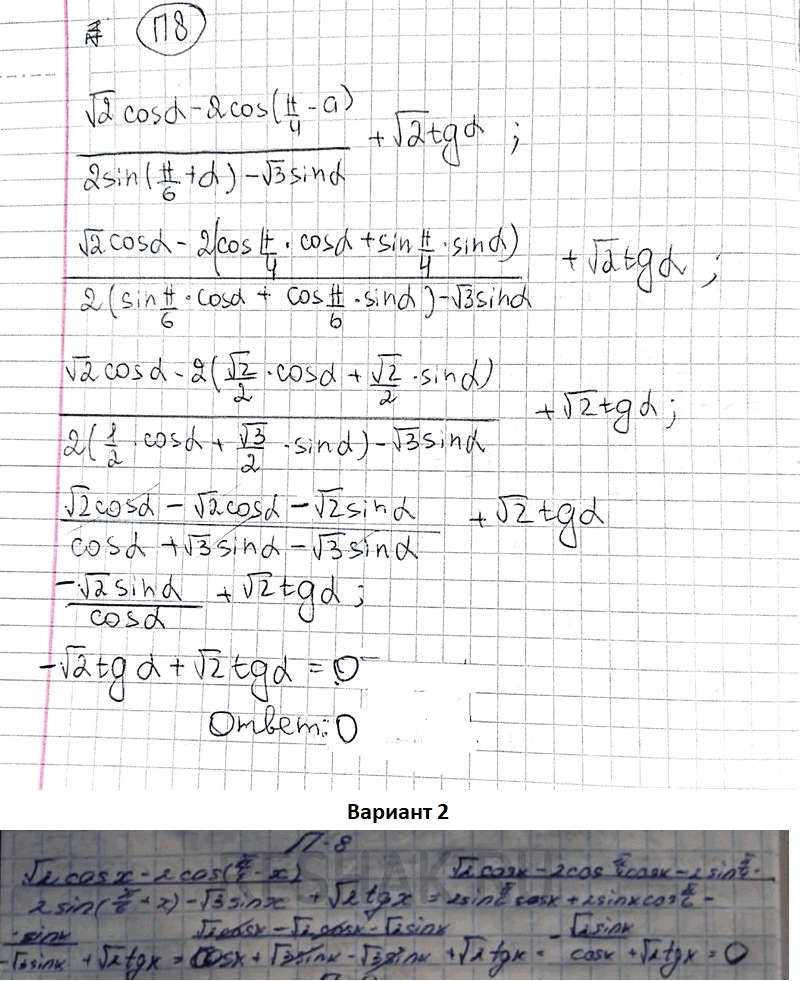 П8
√2 cosα - 2cos(π/4 - α) / 2sin(π/6 + α) - √3 sinα + √2 tgα ;
√2 cosα - 2(cos π/4 · cosα + sin π/4 · sinα) / 2(sin π/6 · cosα + cos π/6 · sinα) - √3 sinα + √2 tgα ;
√2 cosα - 2(√2/2 · cosα + √2/2 · sinα) / 2(1/2 · cosα + √3/2 · sinα) - √3 sinα + √2 tgα ;
√2 cosα - √2 cosα - √2 sinα / cosα + √3 sinα - √3 sinα + √2 tgα
-√2 sinα / cosα + √2 tgα ;
-√2 tgα + √2 tgα = 0
Ответ: 0
Вариант 2
П-8
√2 cosx - 2cos(π/4 - x) / 2sin(π/6 + x) - √3 sinx + √2 tgx = √2 cosx - 2cos π/4 cosx - 2sin π/4 · / 2sin π/6 cosx + 2sinx cos π/6 -
· sinx / -√3 sinx + √2 tgx = √2 cosx - √2 cosx - √2 sinx / cosx + √3 sinx - √3 sinx + √2 tgx = - √2 sinx / cosx + √2 tgx = 0